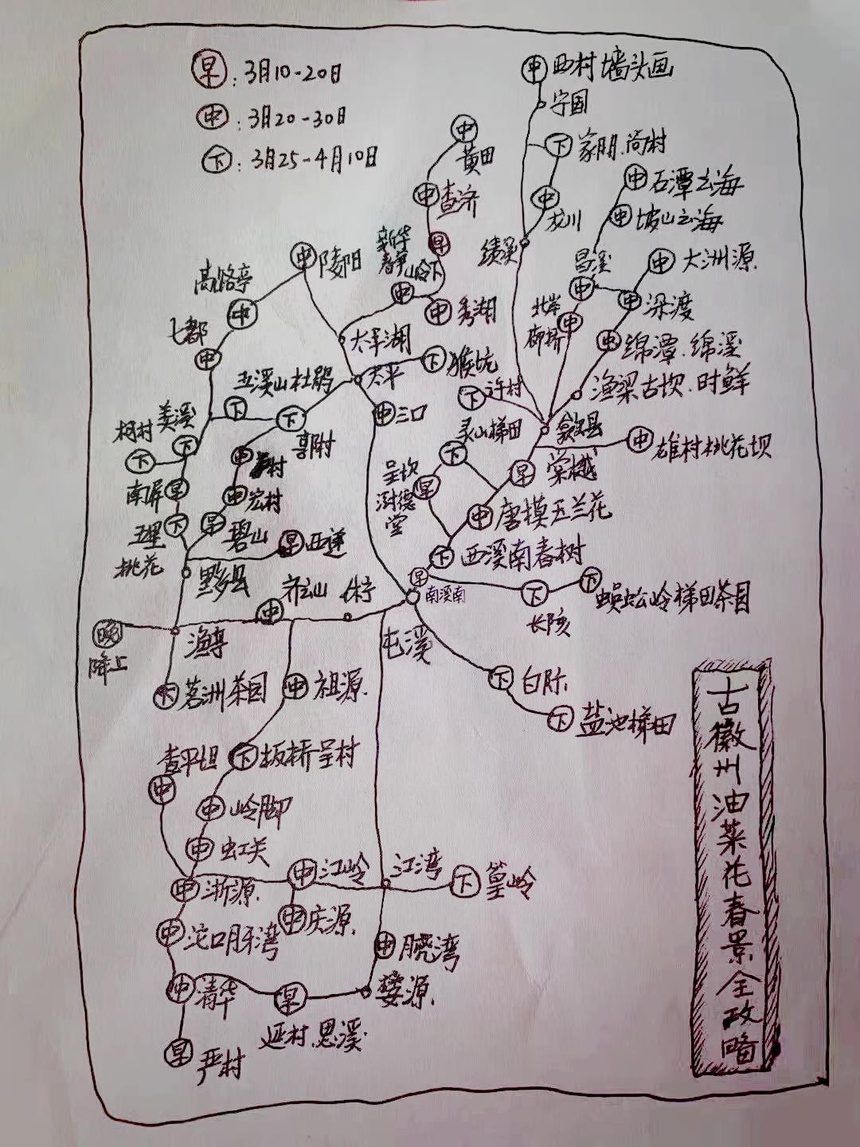 早:3月10-20日
中:3月20-30日
下:3月25-4月10日
中 西村墙头画
宁国
下 家朋.尚村
中 龙川
绩溪
中 黄田
中 查济
早 岭下
新华
春笋
中
中 秀湖
中 陵阳
高路亭
中
七都
中
太平湖
太平
下 猴坑
中 三口
五溪山杜鹃
下
下
中 石潭云海
中 坡山云海
昌溪
中
中 深渡
中 大洲源
北岸
廊桥
中
中 绵潭.绵溪
渔梁古坝.时鲜
下 许村
歙县
中 雄村桃花坝
灵山梯田
下
早 棠樾
呈坎
早
中 唐模玉兰花
下 西溪南春树
早 南溪南
下 长陔
下 蜈蚣岭梯田茶园
柯村
下
美溪
下
南屏 早
五里
桃花
下
中
中 宏村
早 碧山
早 西递
黟县
齐云山
中
休宁
屯溪
晚
降上
渔亭
下 茗洲茶园
中 祖源
下 白际
下 盐池梯田
查平坦
中
下 板桥呈村
中 岭脚
中 虹关
中 浙源
中 江岭
江湾
下 篁岭
中 庆源
中 沱口月牙湾
中 晓湾
中 清华
早
延村.思溪
婺源
早 严村
古徽州油菜花春景全攻略